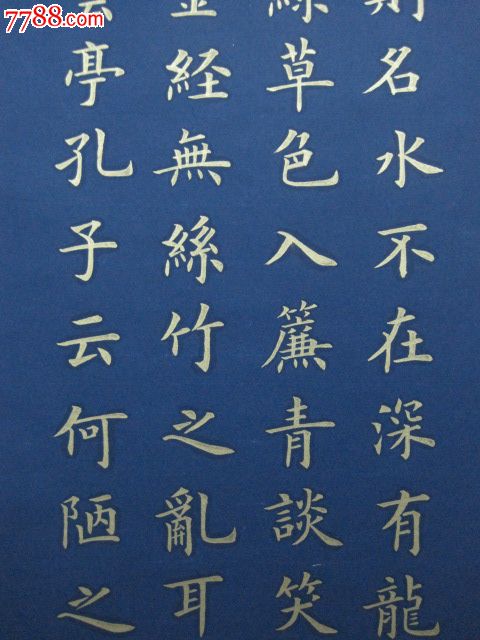 7788.com
則名水不在深有龍
綠草色入簾青談笑
金経無絲竹之亂耳
亭孔子云何陋之